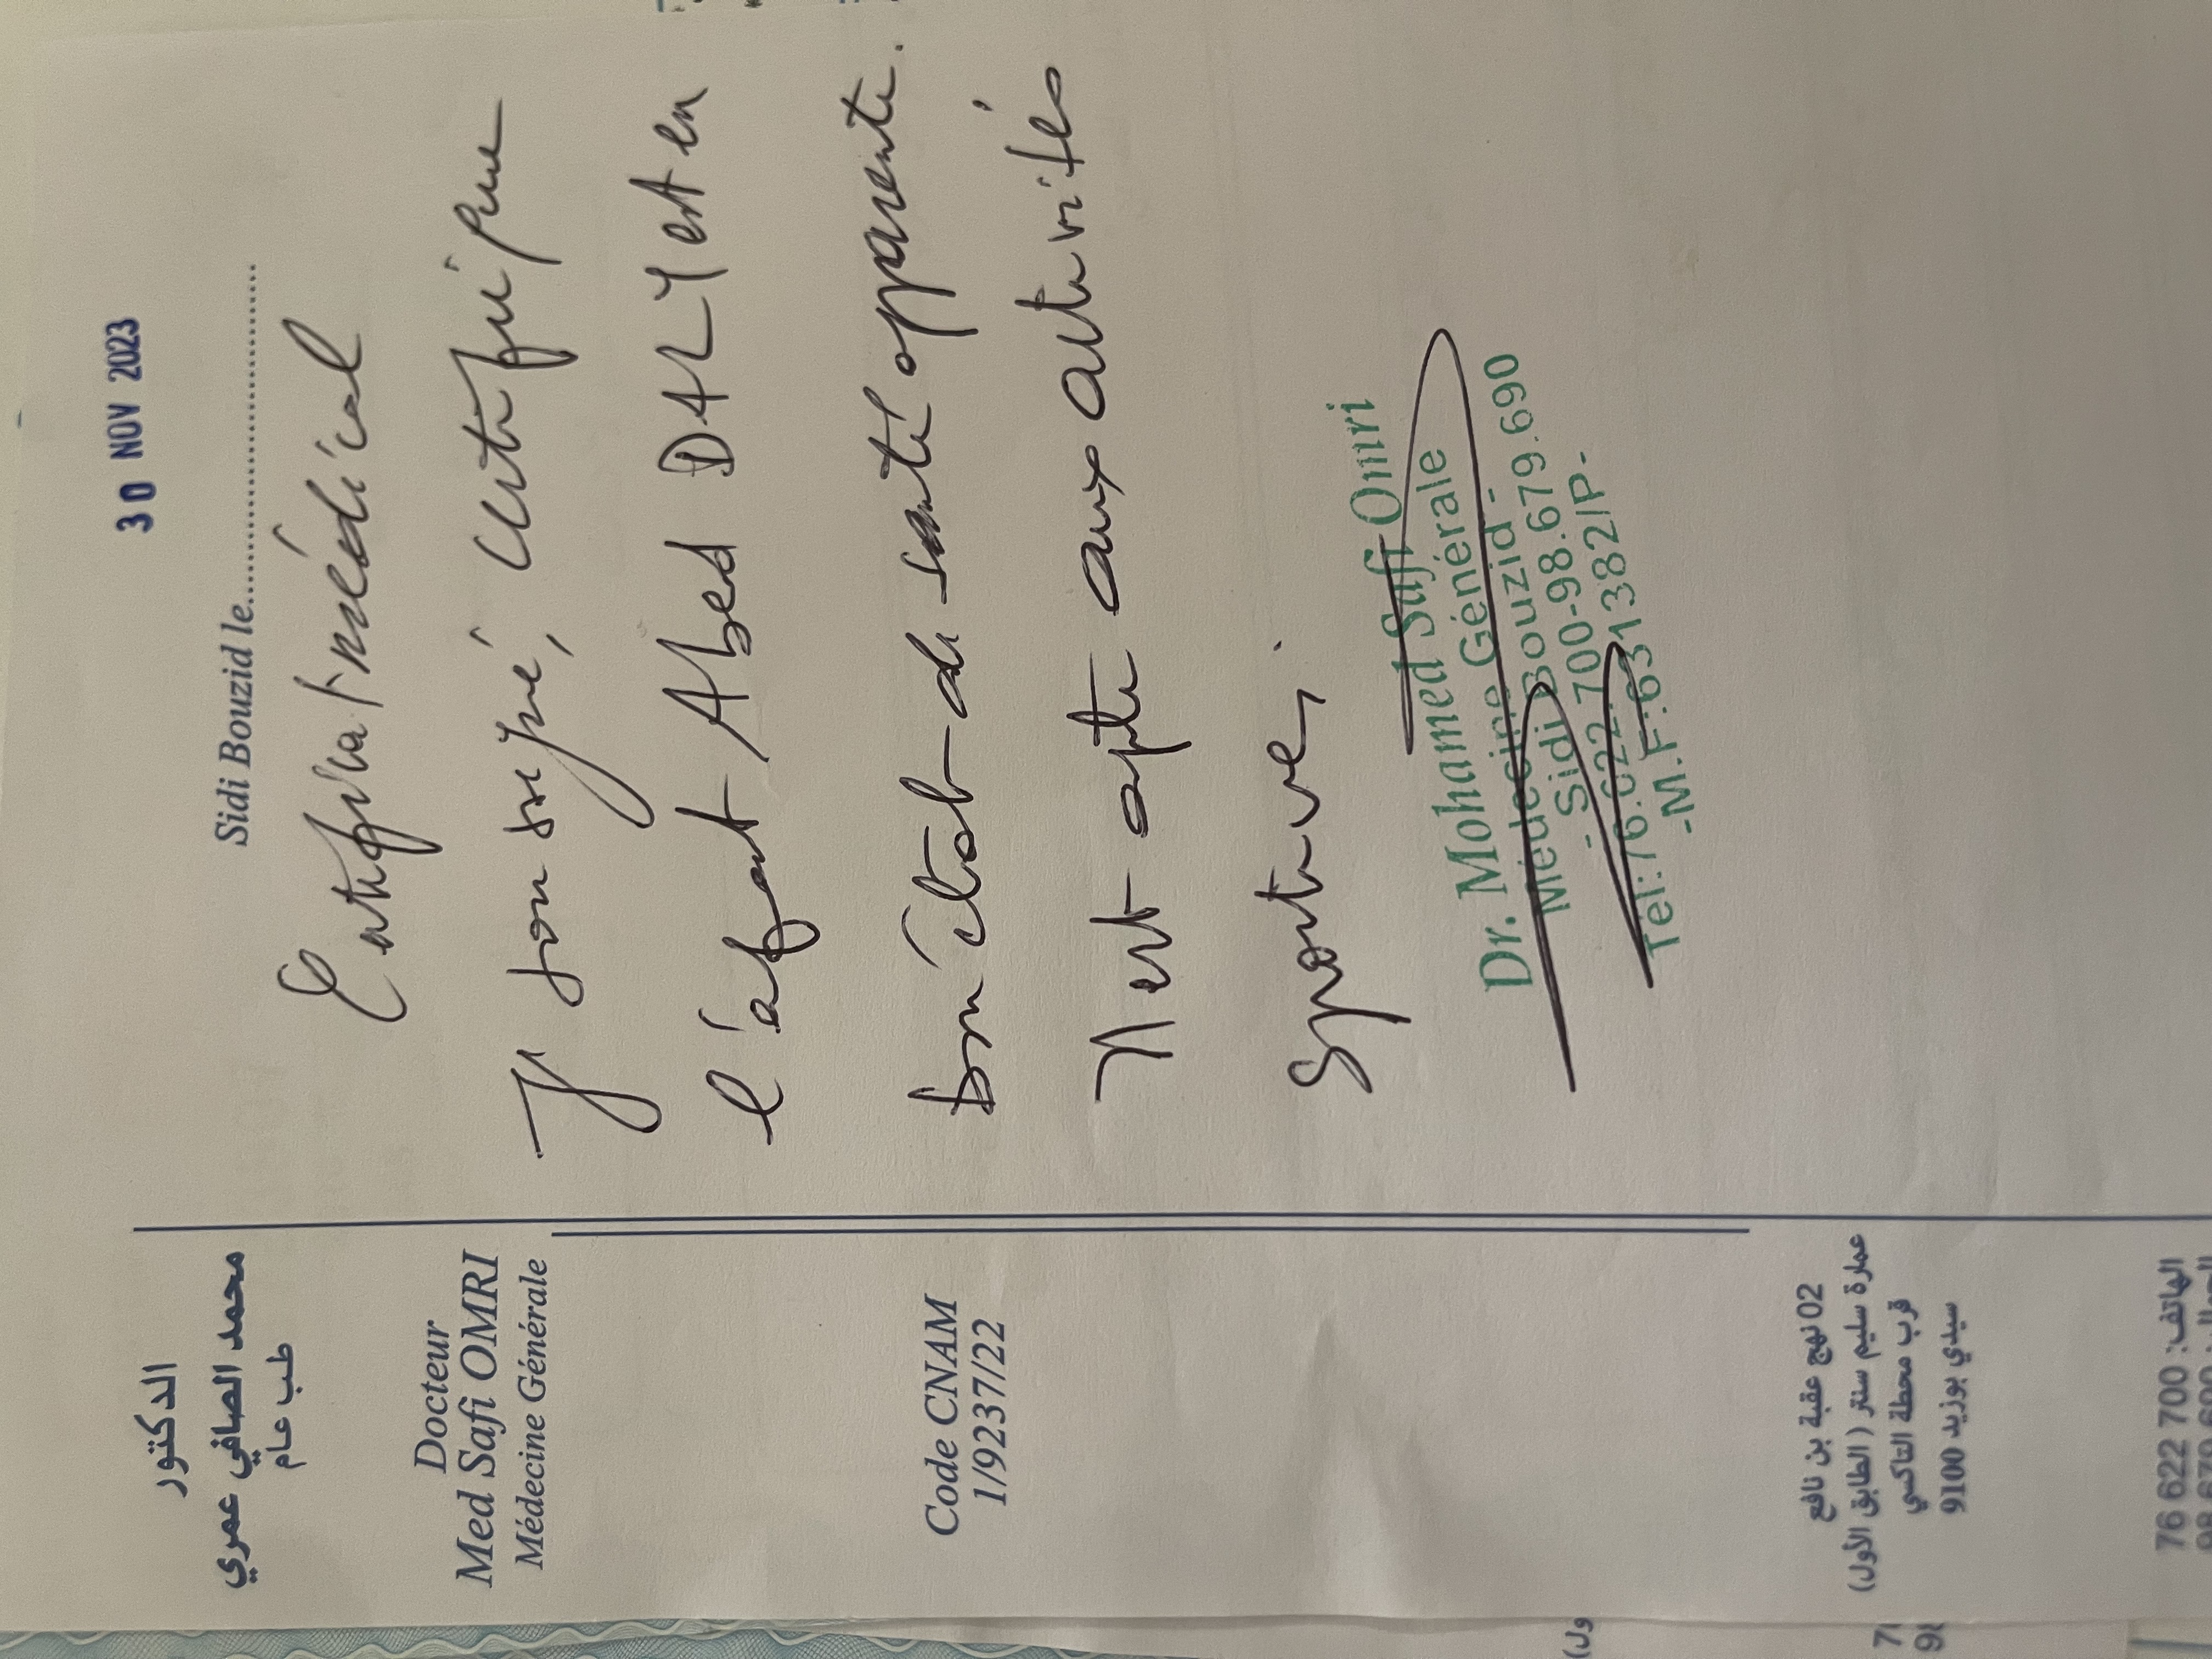 الدكتور
محمد الصافي عمري
طب عام
Docteur
Med Safi OMRI
Médecine Générale
Code CNAM
1/9237/22
02 نهج عقبة بن نافع
عمارة سليم سنتر (الطابق الأول)
قرب محطة التاكسي
سيدي بوزيد 9100
الهاتف: 700 622 76
30 NOV 2023
Sidi Bouzid le
Certificat médical
Je soussigné, certifie que
l'enfant Abed DALY est en
bon état de santé apparente.
Il est apte aux activités
sportive.
Dr. Mohamed Safi Omri
Médecine Générale
- Sidi Bouzid -
Tél: 76.622.700-98.679.690
-M.F:631382/P-